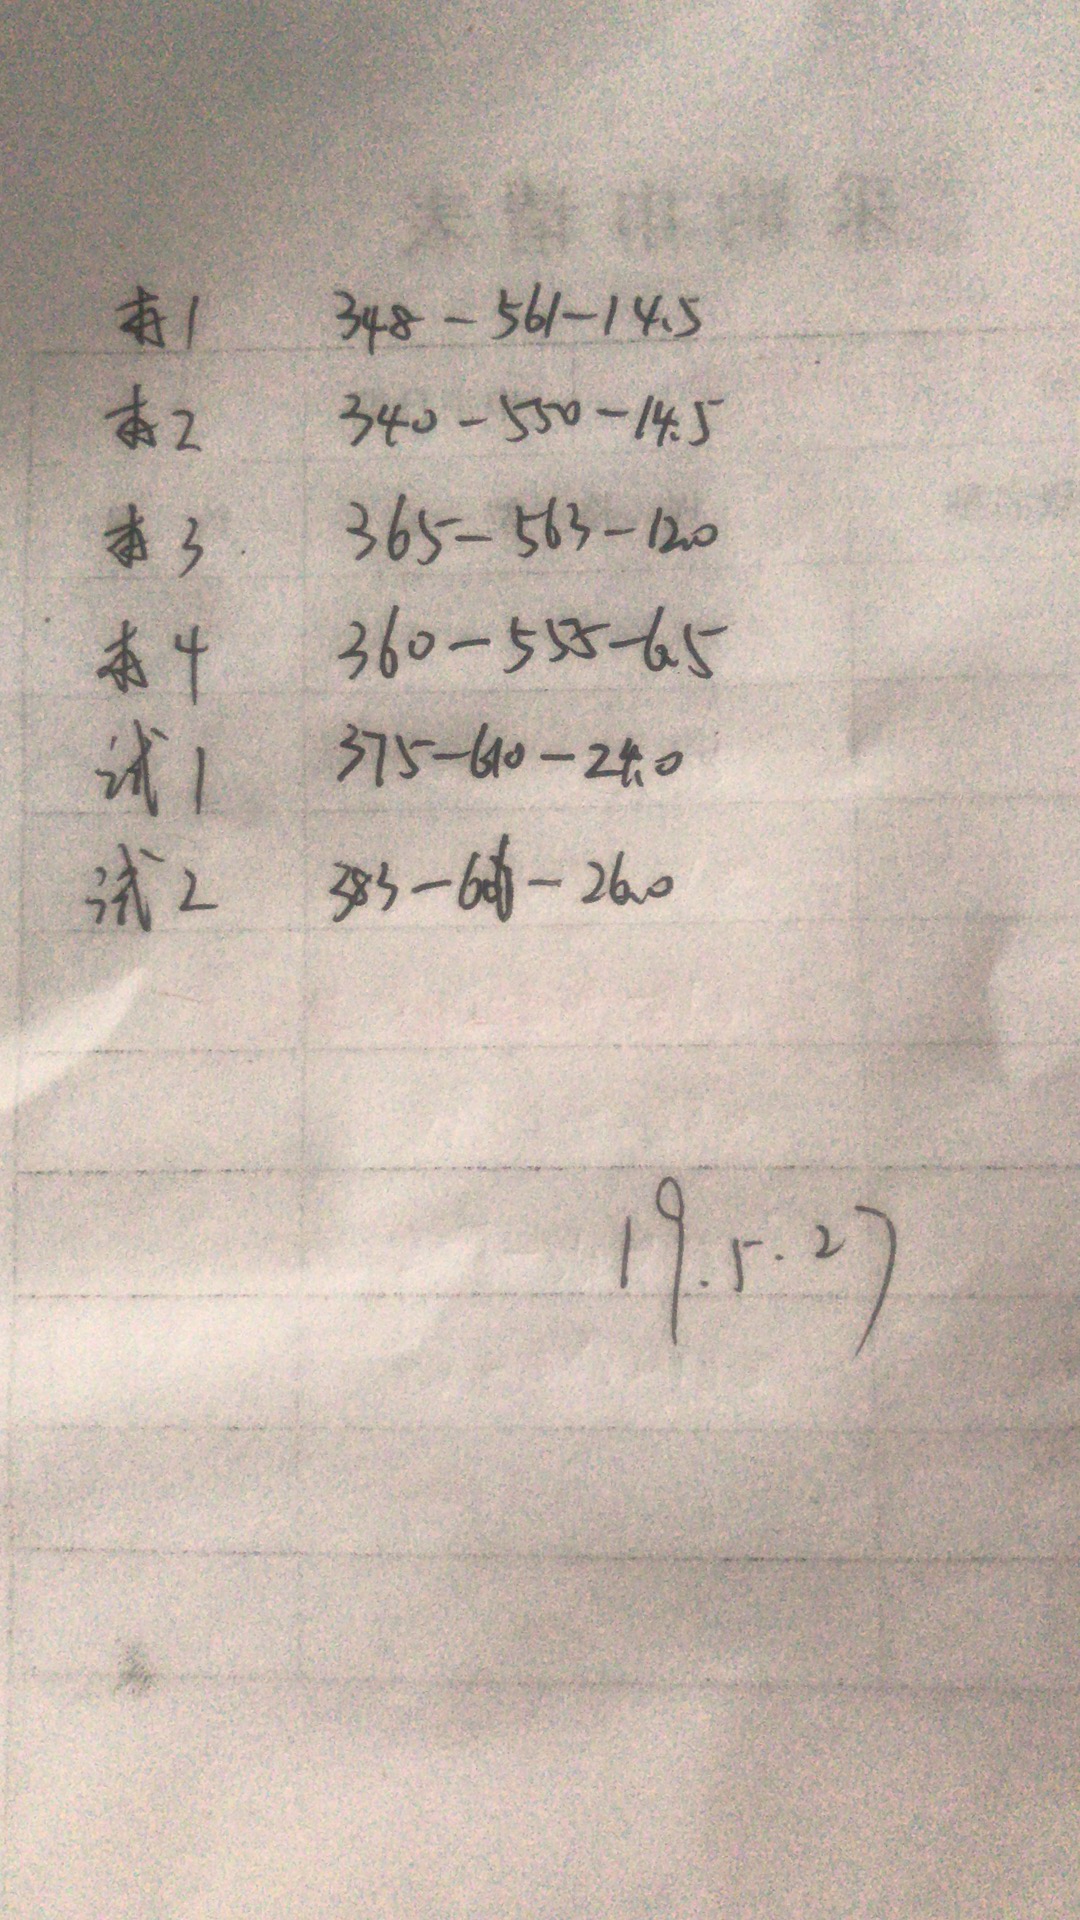 采购申请表
本1 348-561-14.5
本2 340-550-14.5
本3 365-563-12.0
本4 360-555-6.5
试1 375-610-24.0
试2 383--26.0
19.5.27